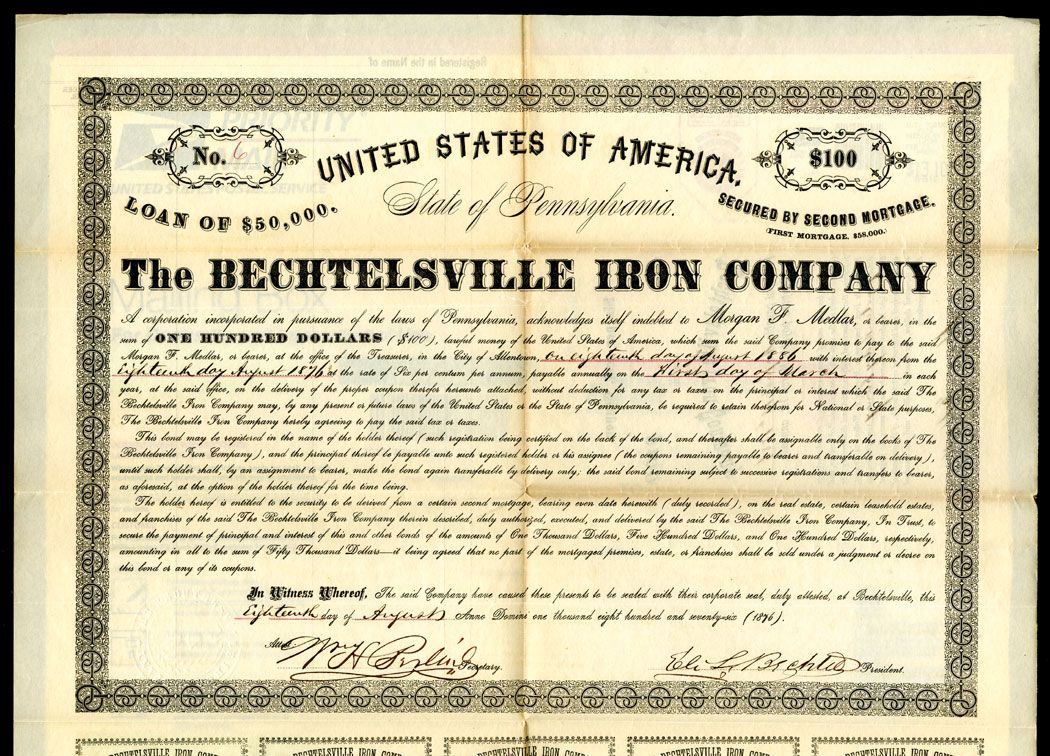 Registered in the Name of
No. 6
PRIORITY
MAIL
UNITED STATES POSTAL SERVICE
Mailing Box
UNITED STATES OF AMERICA.
$100
LOAN OF $50,000.
State of Pennsylvania.
SECURED BY SECOND MORTGAGE.
(FIRST MORTGAGE, $58,000.)
The BECHTELSVILLE IRON COMPANY
A corporation incorporated in pursuance of the laws of Pennsylvania, acknowledges itself indebted to Morgan F. Medlar, or bearer, in the
sum of ONE HUNDRED DOLLARS ($100), lawful money of the United States of America, which sum the said Company promises to pay to the said
Morgan F. Medlar, or bearer, at the office of the Treasurer, in the City of Allentown, on eighteenth day of August 1886 with interest thereon from the
Eighteenth day August 1876 at the rate of Six per centum per annum, payable annually on the First day of March in each
year, at the said office, on the delivery of the proper coupon therefor hereunto attached, without deduction for any tax or taxes on the principal or interest which the said The
Bechtelsville Iron Company may, by any present or future laws of the United States or the State of Pennsylvania, be required to retain therefrom for National or State purposes,
The Bechtelsville Iron Company hereby agreeing to pay the said tax or taxes.
This bond may be registered in the name of the holder thereof (such registration being certified on the back of the bond, and thereafter shall be assignable only on the books of The
Bechtelsville Iron Company), and the principal thereof be payable unto such registered holder or his assignee (the coupons remaining payable to bearer and transferable on delivery),
until such holder shall, by an assignment to bearer, make the bond again transferable by delivery only; the said bond remaining subject to successive registrations and transfers to bearer,
as aforesaid, at the option of the holder thereof for the time being.
The holder hereof is entitled to the security to be derived from a certain second mortgage, bearing even date herewith (duly recorded), on the real estate, certain leasehold estates,
and franchises of the said The Bechtelsville Iron Company therein described, duly authorized, executed, and delivered by the said The Bechtelsville Iron Company, In Trust, to
secure the payment of principal and interest of this and other bonds of the amounts of One Thousand Dollars, Five Hundred Dollars, and One Hundred Dollars, respectively,
amounting in all to the sum of Fifty Thousand Dollars—it being agreed that no part of the mortgaged premises, estate, or franchises shall be sold under a judgment or decree on
this bond or any of its coupons.
In Witness Whereof, The said Company have caused these presents to be sealed with their corporate seal, duly attested, at Bechtelsville, this
Eighteenth day of August Anno Domini one thousand eight hundred and seventy-six (1876).
Attest Wm H Secretary.
Eli L Bechtel President.
BECHTELSVILLE IRON COMP
BECHTELSVILLE IRON COMP
BECHTELSVILLE IRON COMP
BECHTELSVILLE IRON COMP
BECHTELSVILLE IRON COMP